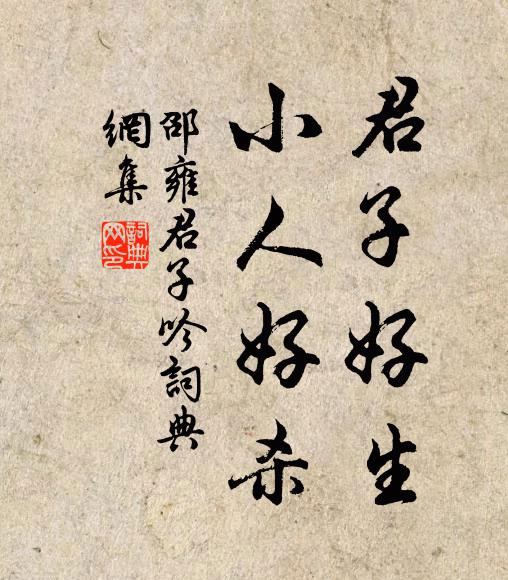 君子好生
小人好杀
邵雍君子吟詞典
網集
詞典
网印